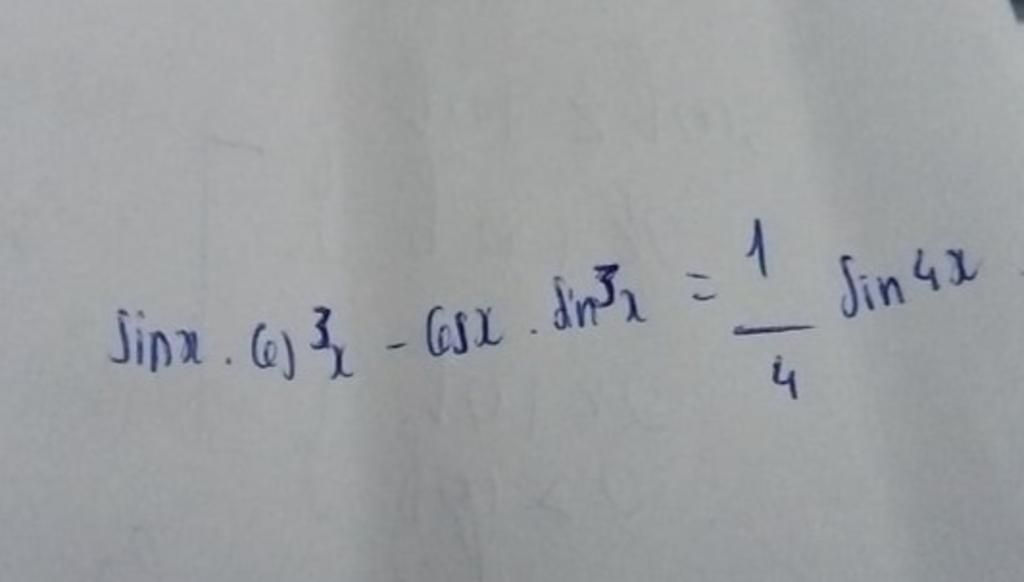 sinx . cos³x - cosx . sin³x = 1/4 sin4x